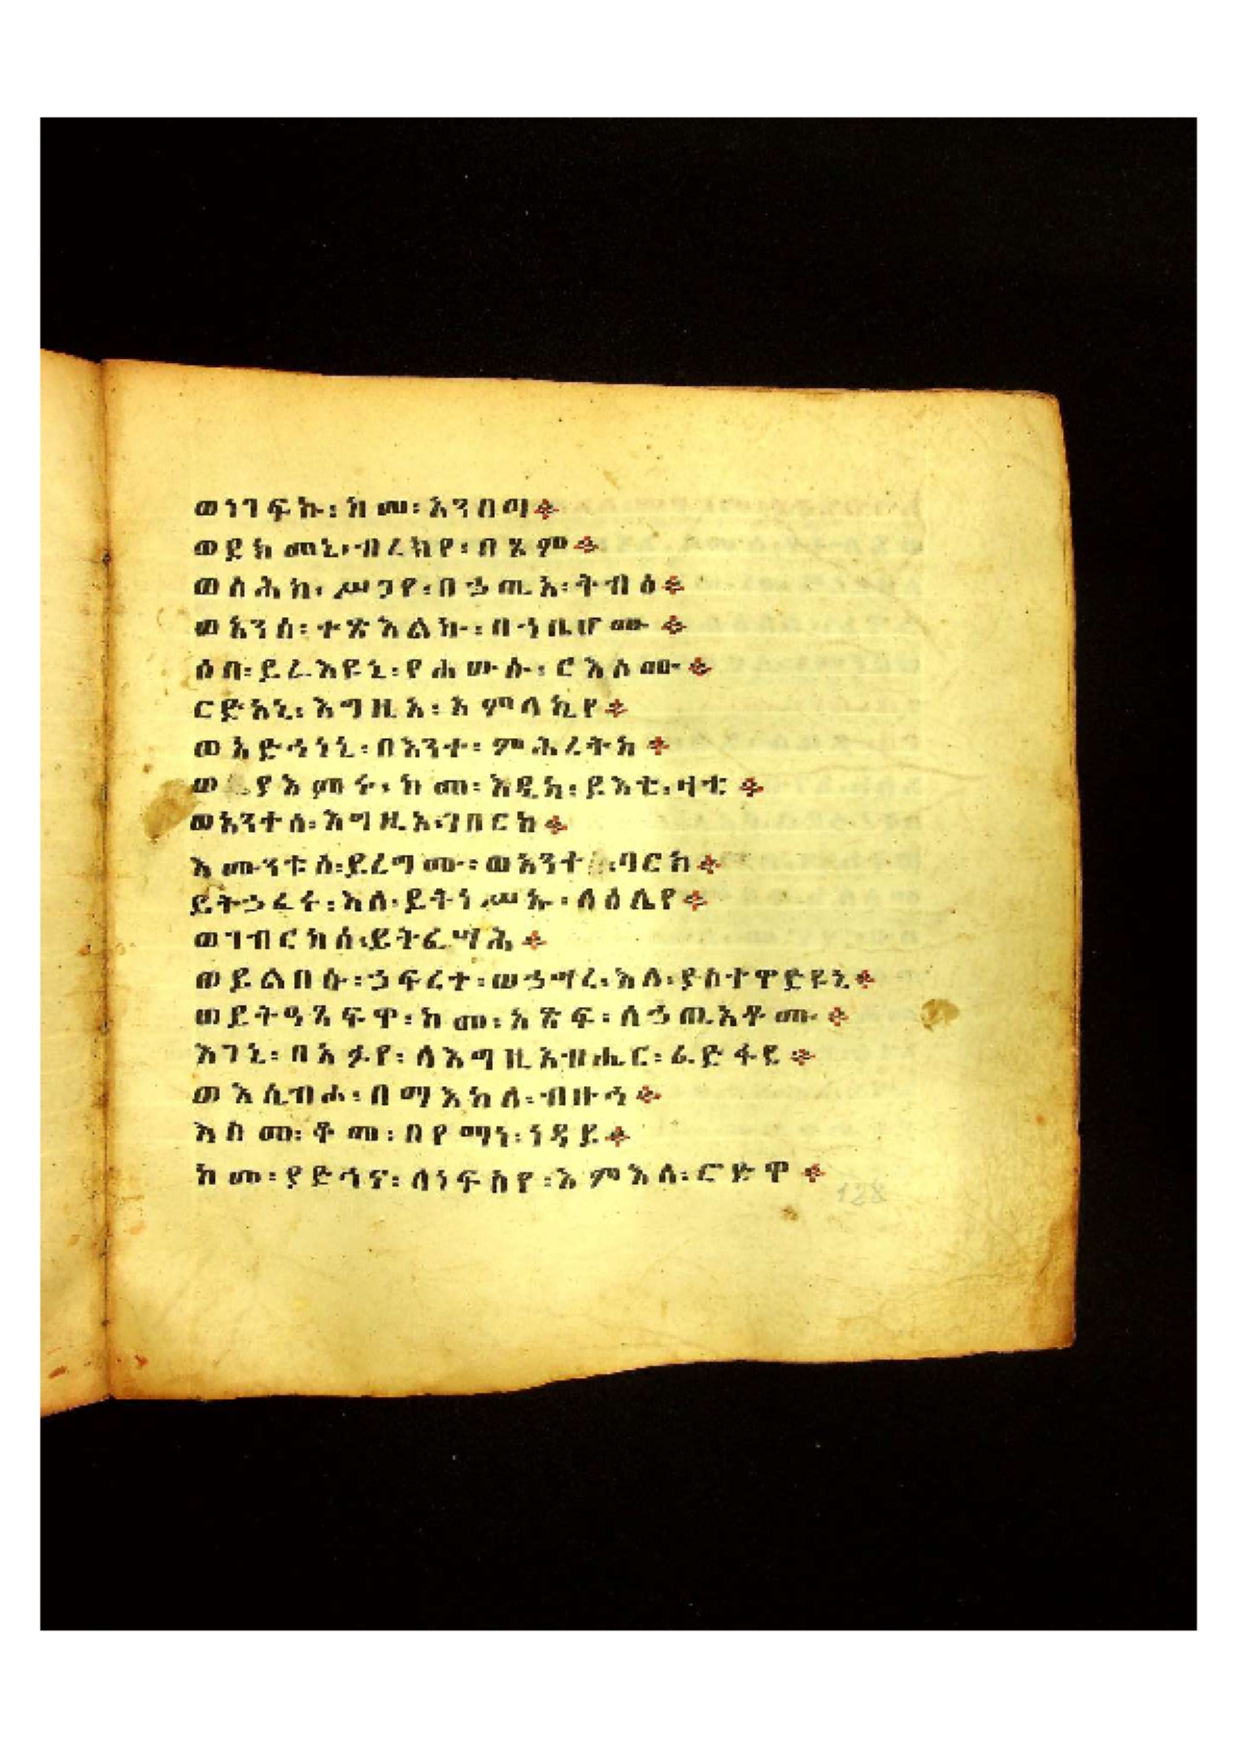 ወነገፍኩ፡ ከመ፡ አንበጣ።
ወደክመኒ፡ ብረክየ፡ በጾም።
ወስሕከ፡ ሥጋየ፡ በኃጢአ፡ ትብዕ።
ወአንሰ፡ ተጽእልኩ፡ በኀቤሆሙ።
ሶበ፡ ይሬእዩኒ፡ የሐውሱ፡ ርእሶሙ።
ርድአኒ፡ እግዚአ፡ አምላኪየ።
ወአድኅነኒ፡ በእንተ፡ ምሕረትከ።
ወያእምሩ፡ ከመ፡ እዴከ፡ ይእቲ፡ ዛቲ።
ወአንተሰ፡ እግዚአ፡ ገበርከ።
እሙንቱሰ፡ ይረግሙ፡ ወአንተ፡ ባርክ።
ይትኃፈሩ፡ እለ፡ ይትነሥኡ፡ ላዕሌየ።
ወገብርከሰ፡ ይትፌሣሕ።
ወይልበሱ፡ ኃፍረተ፡ ወኃሣረ፡ እለ፡ ያስተዋድዩኒ።
ወይትዓጸፍዋ፡ ከመ፡ አጽፍ፡ ለኃጢአቶሙ።
እገኒ፡ በአፉየ፡ ለእግዚአብሔር፡ ፈድፋደ።
ወእሴብሖ፡ በማእከለ፡ ብዙኅ።
እስመ፡ ቆመ፡ በየማነ፡ ነዳይ።
ከመ፡ ያድኅና፡ ለነፍስየ፡ እምእለ፡ ሮድዋ።
128